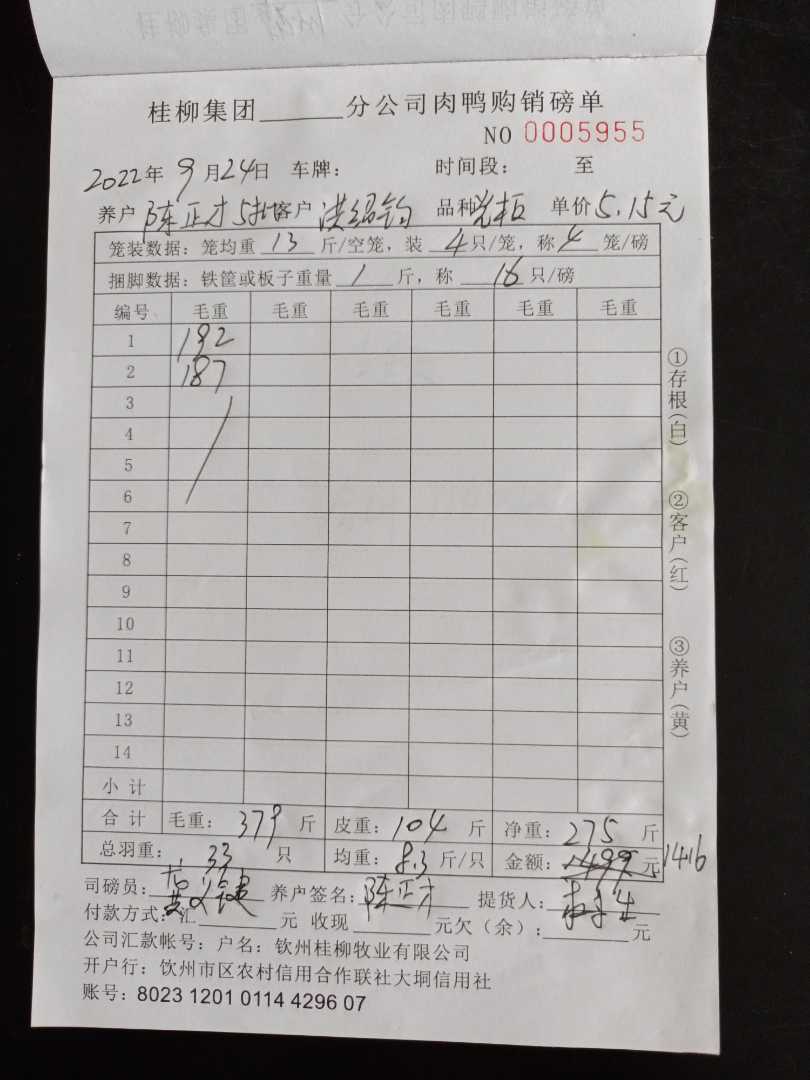 桂柳集团______分公司肉鸭购销磅单
NO 0005955
2022年 9月24日 车牌： 时间段： 至
养户 陈正才 5批 客户 洪绍钧 品种 单价 5.15元
笼装数据：笼均重 13 斤/空笼，装 4 只/笼，称 4 笼/磅
捆脚数据：铁筐或板子重量 1 斤，称 16 只/磅
编号 毛重 毛重 毛重 毛重 毛重 毛重
1 192
2 187
3
4
5
6
7
8
9
10
11
12
13
14
小计
合计 毛重：379 斤 皮重：104 斤 净重：275 斤
总羽重：33 只 均重：8.3 斤/只 金额：1499 元 1416
司磅员： 养户签名：陈正才 提货人：
付款方式：汇______元 收现______元欠（余）：______元
公司汇款帐号：户名：钦州桂柳牧业有限公司
开户行：饮州市区农村信用合作联社大垌信用社
账号：8023 1201 0114 4296 07
①存根（白） ②客户（红） ③养户（黄）